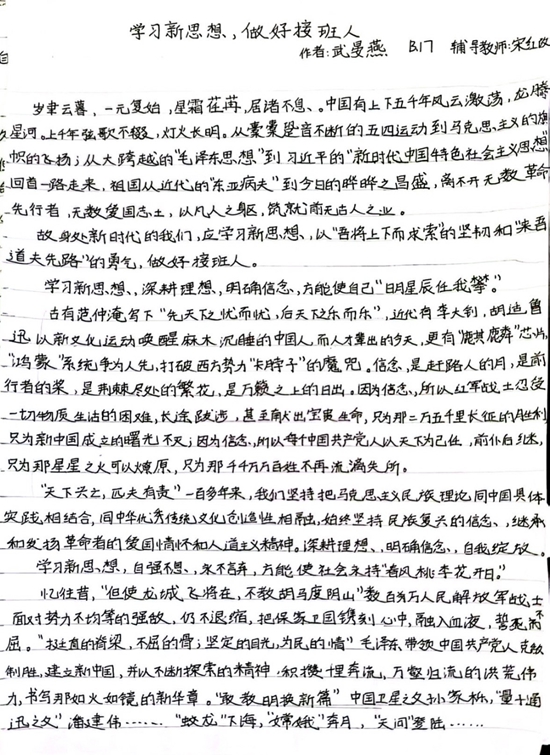 学习新思想,做好接班人
作者:武曼燕 B17 辅导教师:宋红改
岁聿云暮,一元复始,星霜荏苒,居诸不息、。中国有上下五千年风云激荡,龙腾
星河。上千年弦歌不辍,灯火长明。从橐橐跫音不断的五四运动到马克思主义的旗
帜的飞扬;从大跨越的"毛泽东思想"到习近平的"新时代中国特色社会主义思想"
回首一路走来,祖国从近代的"东亚病夫"到今日的晔晔之昌盛,离不开无数革命
先行者,无数爱国志士,以凡人之躯,筑就前无古人之业。
故身处新时代的我们,应学习新思想、以"吾将上下而求索"的坚韧和"来吾
道夫先路"的勇气,做好接班人。
学习新思想、,深耕理想,明确信念,方能使自己"日明星辰任我攀"。
古有范仲淹勾下"先天下之忧而忧,后天下之乐而乐",近代有李大钊,胡适鲁
迅以新文化运动唤醒麻木沉睡的中国人,而人才辈出的今天,更有"麒麟"芯片,
"鸿蒙"系统争为人先,打破西方势力"卡脖子"的魔咒。信念,是赶路人的月,是前
行者的桨,是荆棘尽处的繁花,是万籁之上的日出。因为信念,所以红军战士忍受
一切物质生活的困难,长途跋涉,甚至献出宝贵生命,只为那二万五千里长征的胜利
只为新中国成立的曙光不灭;因为信念,所以每个中国共产党人以天下为己任,前仆后继,
只为那星星之火可以燎原,只为那千千万万百姓不再流离失所。
"天下兴亡,匹夫有责"一百多年来,我们坚持把马克思主义民族理论同中国具体
实践相结合,同中华优秀传统文化创造性相融,始终坚持民族复兴的信念、,继承
和发扬革命者的爱国情怀和人道主义精神。深耕理想、明确信念、自我绽放。
学习新思想,自强不息、永不言弃,方能使社会永持"春风桃李花开日。"
忆往昔,"但使龙城飞将在,不教胡马度阴山"数百万人民解放军战士
面对势力不均等的强敌,仍不退缩,把保家卫国镌刻心中,融入血液,誓死不
屈。"挺直的脊梁,不屈的骨;坚定的目光,为民的情"毛泽东带领中国共产党人克敌
制胜,建立新中国,并以不断探索的精神,积攒千里奔流,万壑归流的洪荒伟
力,书写那如火如镜的新华章。"敢教明换新篇"中国卫星之父孙家栋,"量子通
迅之父"潘建伟……,"蛟龙"下海,"嫦娥"奔月,"天问"登陆……